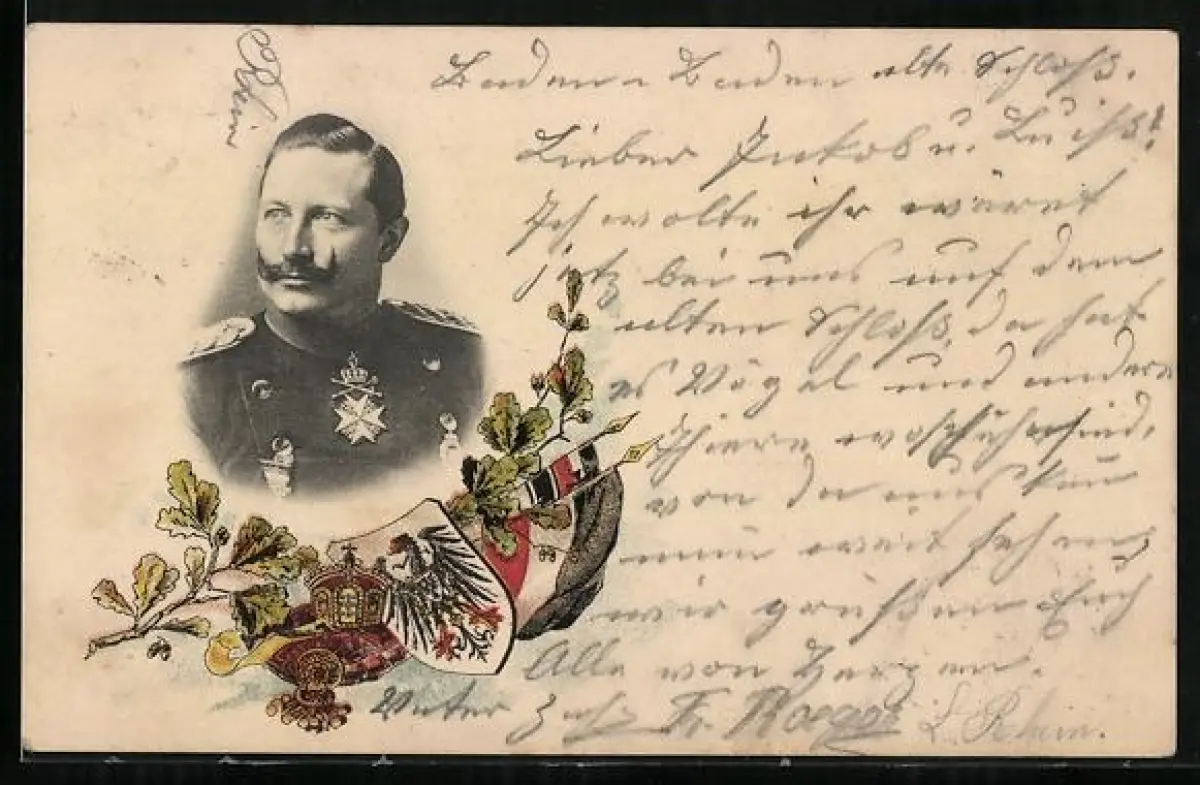 Rhein
Baden-Baden alte Schloß.
Lieber Jakob u. Luiß!
Ich wolte ihr wäret
jetz bei uns auf dem
alten Schloß, da hat
es Vögel und andere
Thiere
von da aus kan
man weit sehen,
wir grüßen Euch
Alle von Herzen.
Vater Fr.
L. Rhein.